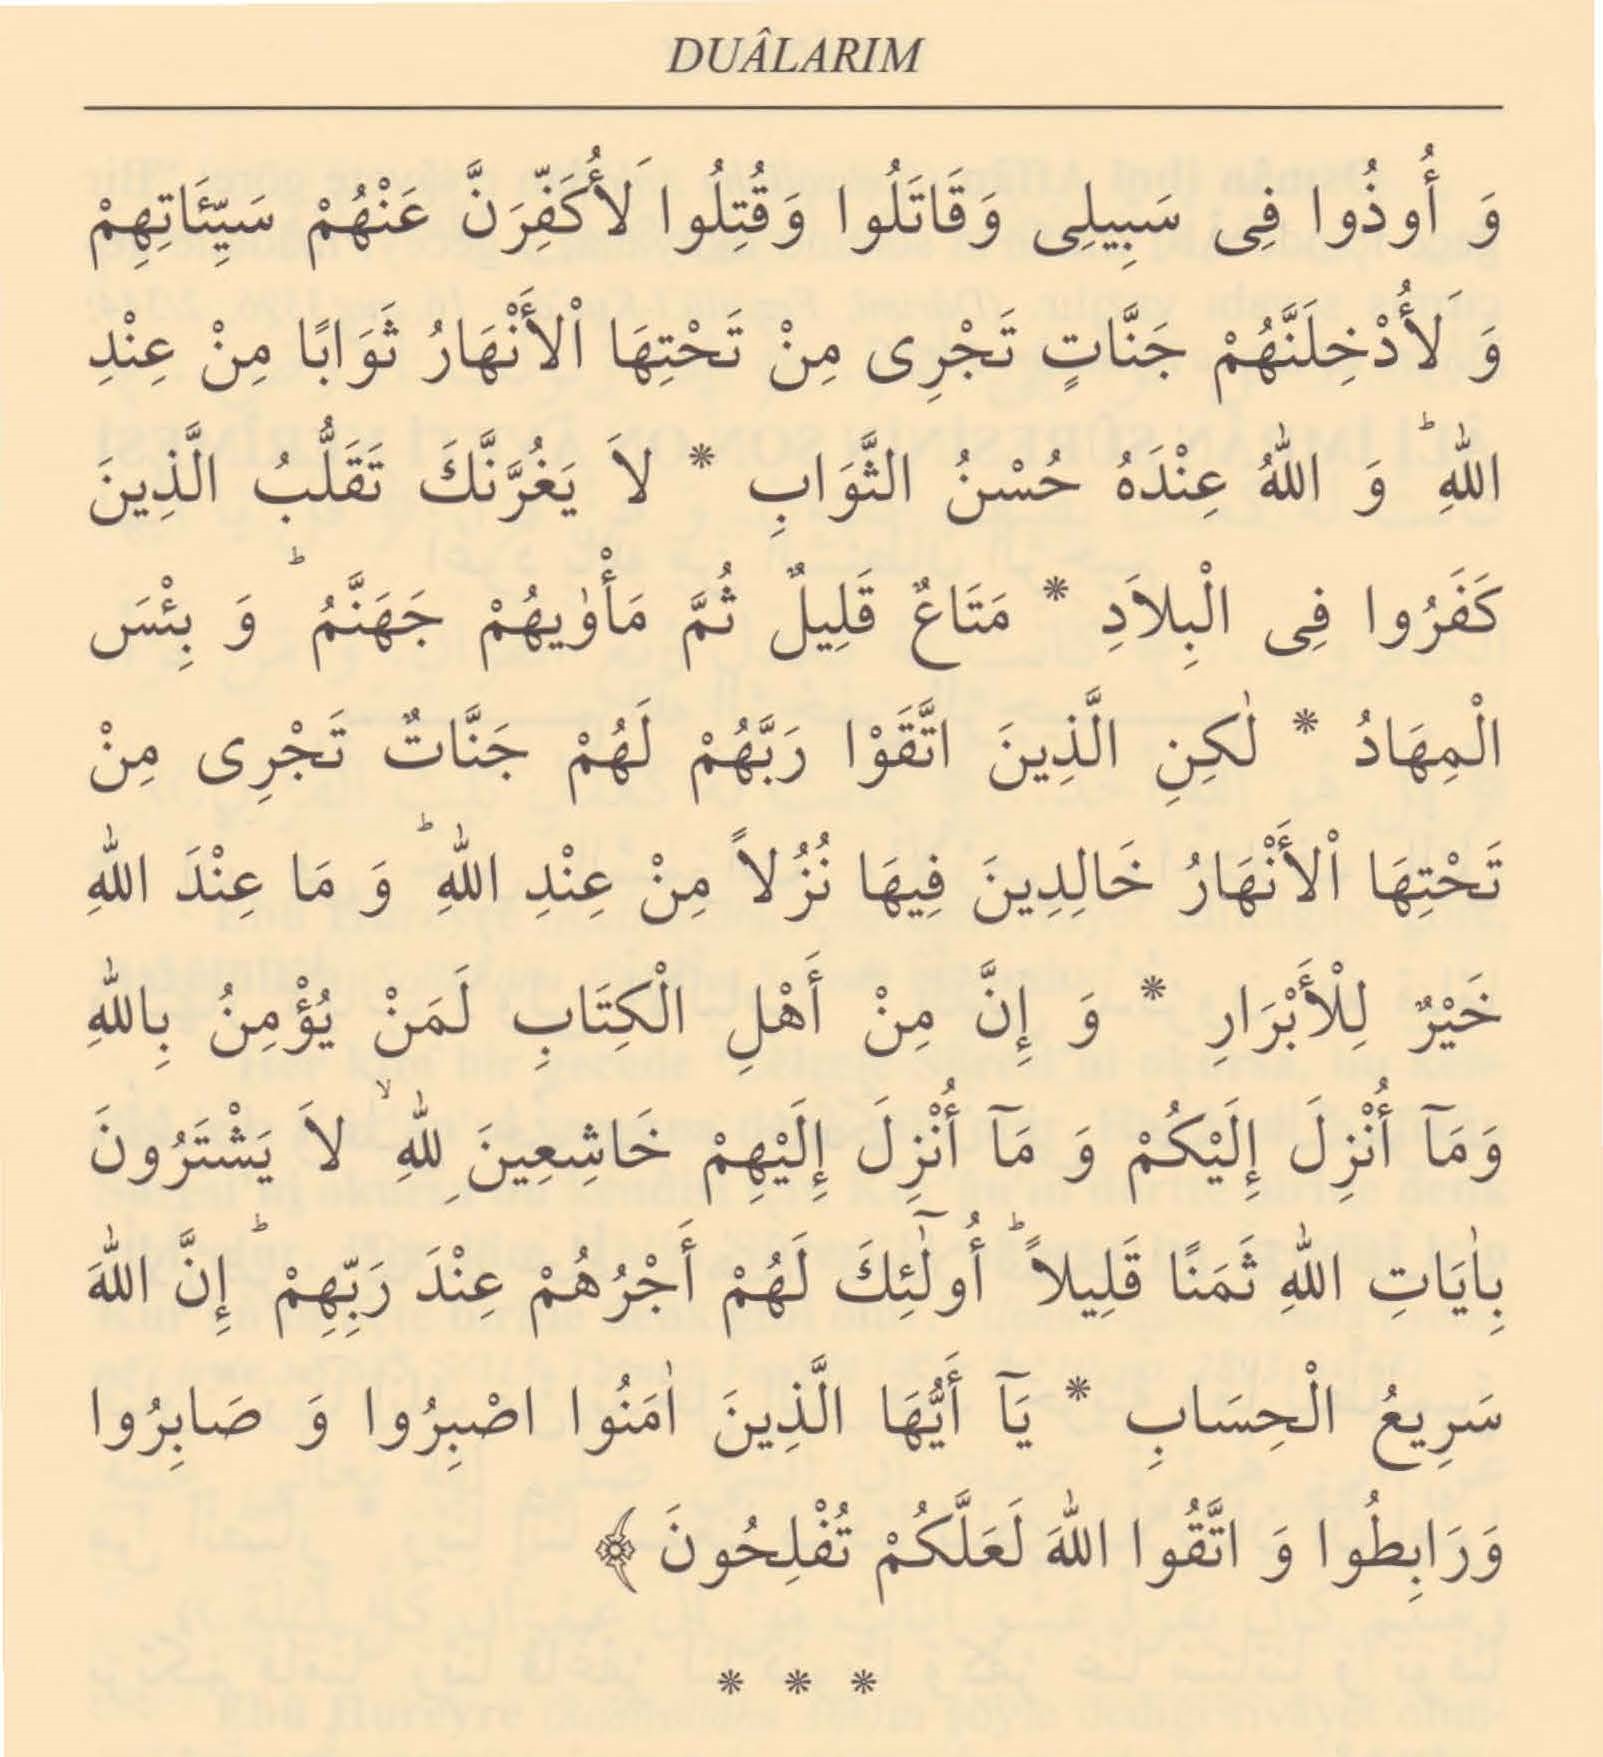 DUÂLARIM
وَ أُوذُوا فِى سَبِيلِى وَقَاتَلُوا وَقُتِلُوا َلأُكَفِّرَنَّ عَنْهُمْ سَيِّئَاتِهِمْ
وَ َلأُدْخِلَنَّهُمْ جَنَّاتٍ تَجْرِى مِنْ تَحْتِهَا اْلأَنْهَارُ ثَوَابًا مِنْ عِنْدِ
اللهِ ؕ وَ اللهُ عِنْدَهُ حُسْنُ الثَّوَابِ * لاَ يَغُرَّنَّكَ تَقَلُّبُ الَّذِينَ
كَفَرُوا فِى الْبِلاَدِ * مَتَاعٌ قَلِيلٌ ثُمَّ مَأْوٰيهُمْ جَهَنَّمُ ؕ وَ بِئْسَ
الْمِهَادُ * لٰكِنِ الَّذِينَ اتَّقَوْا رَبَّهُمْ لَهُمْ جَنَّاتٌ تَجْرِى مِنْ
تَحْتِهَا اْلأَنْهَارُ خَالِدِينَ فِيهَا نُزُلاً مِنْ عِنْدِ اللهِ ؕ وَ مَا عِنْدَ اللهِ
خَيْرٌ لِلْأَبْرَارِ * وَ إِنَّ مِنْ أَهْلِ الْكِتَابِ لَمَنْ يُؤْمِنُ بِاللهِ
وَمَآ أُنْزِلَ إِلَيْكُمْ وَ مَآ أُنْزِلَ إِلَيْهِمْ خَاشِعِينَ ِللهِ ۙ لاَ يَشْتَرُونَ
بِاٰيَاتِ اللهِ ثَمَنًا قَلِيلاً ؕ أُولٰٓئِكَ لَهُمْ أَجْرُهُمْ عِنْدَ رَبِّهِمْ ؕ إِنَّ اللهَ
سَرِيعُ الْحِسَابِ * يَآ أَيُّهَا الَّذِينَ اٰمَنُوا اصْبِرُوا وَ صَابِرُوا
وَرَابِطُوا وَ اتَّقُوا اللهَ لَعَلَّكُمْ تُفْلِحُونَ ﴾
* * *